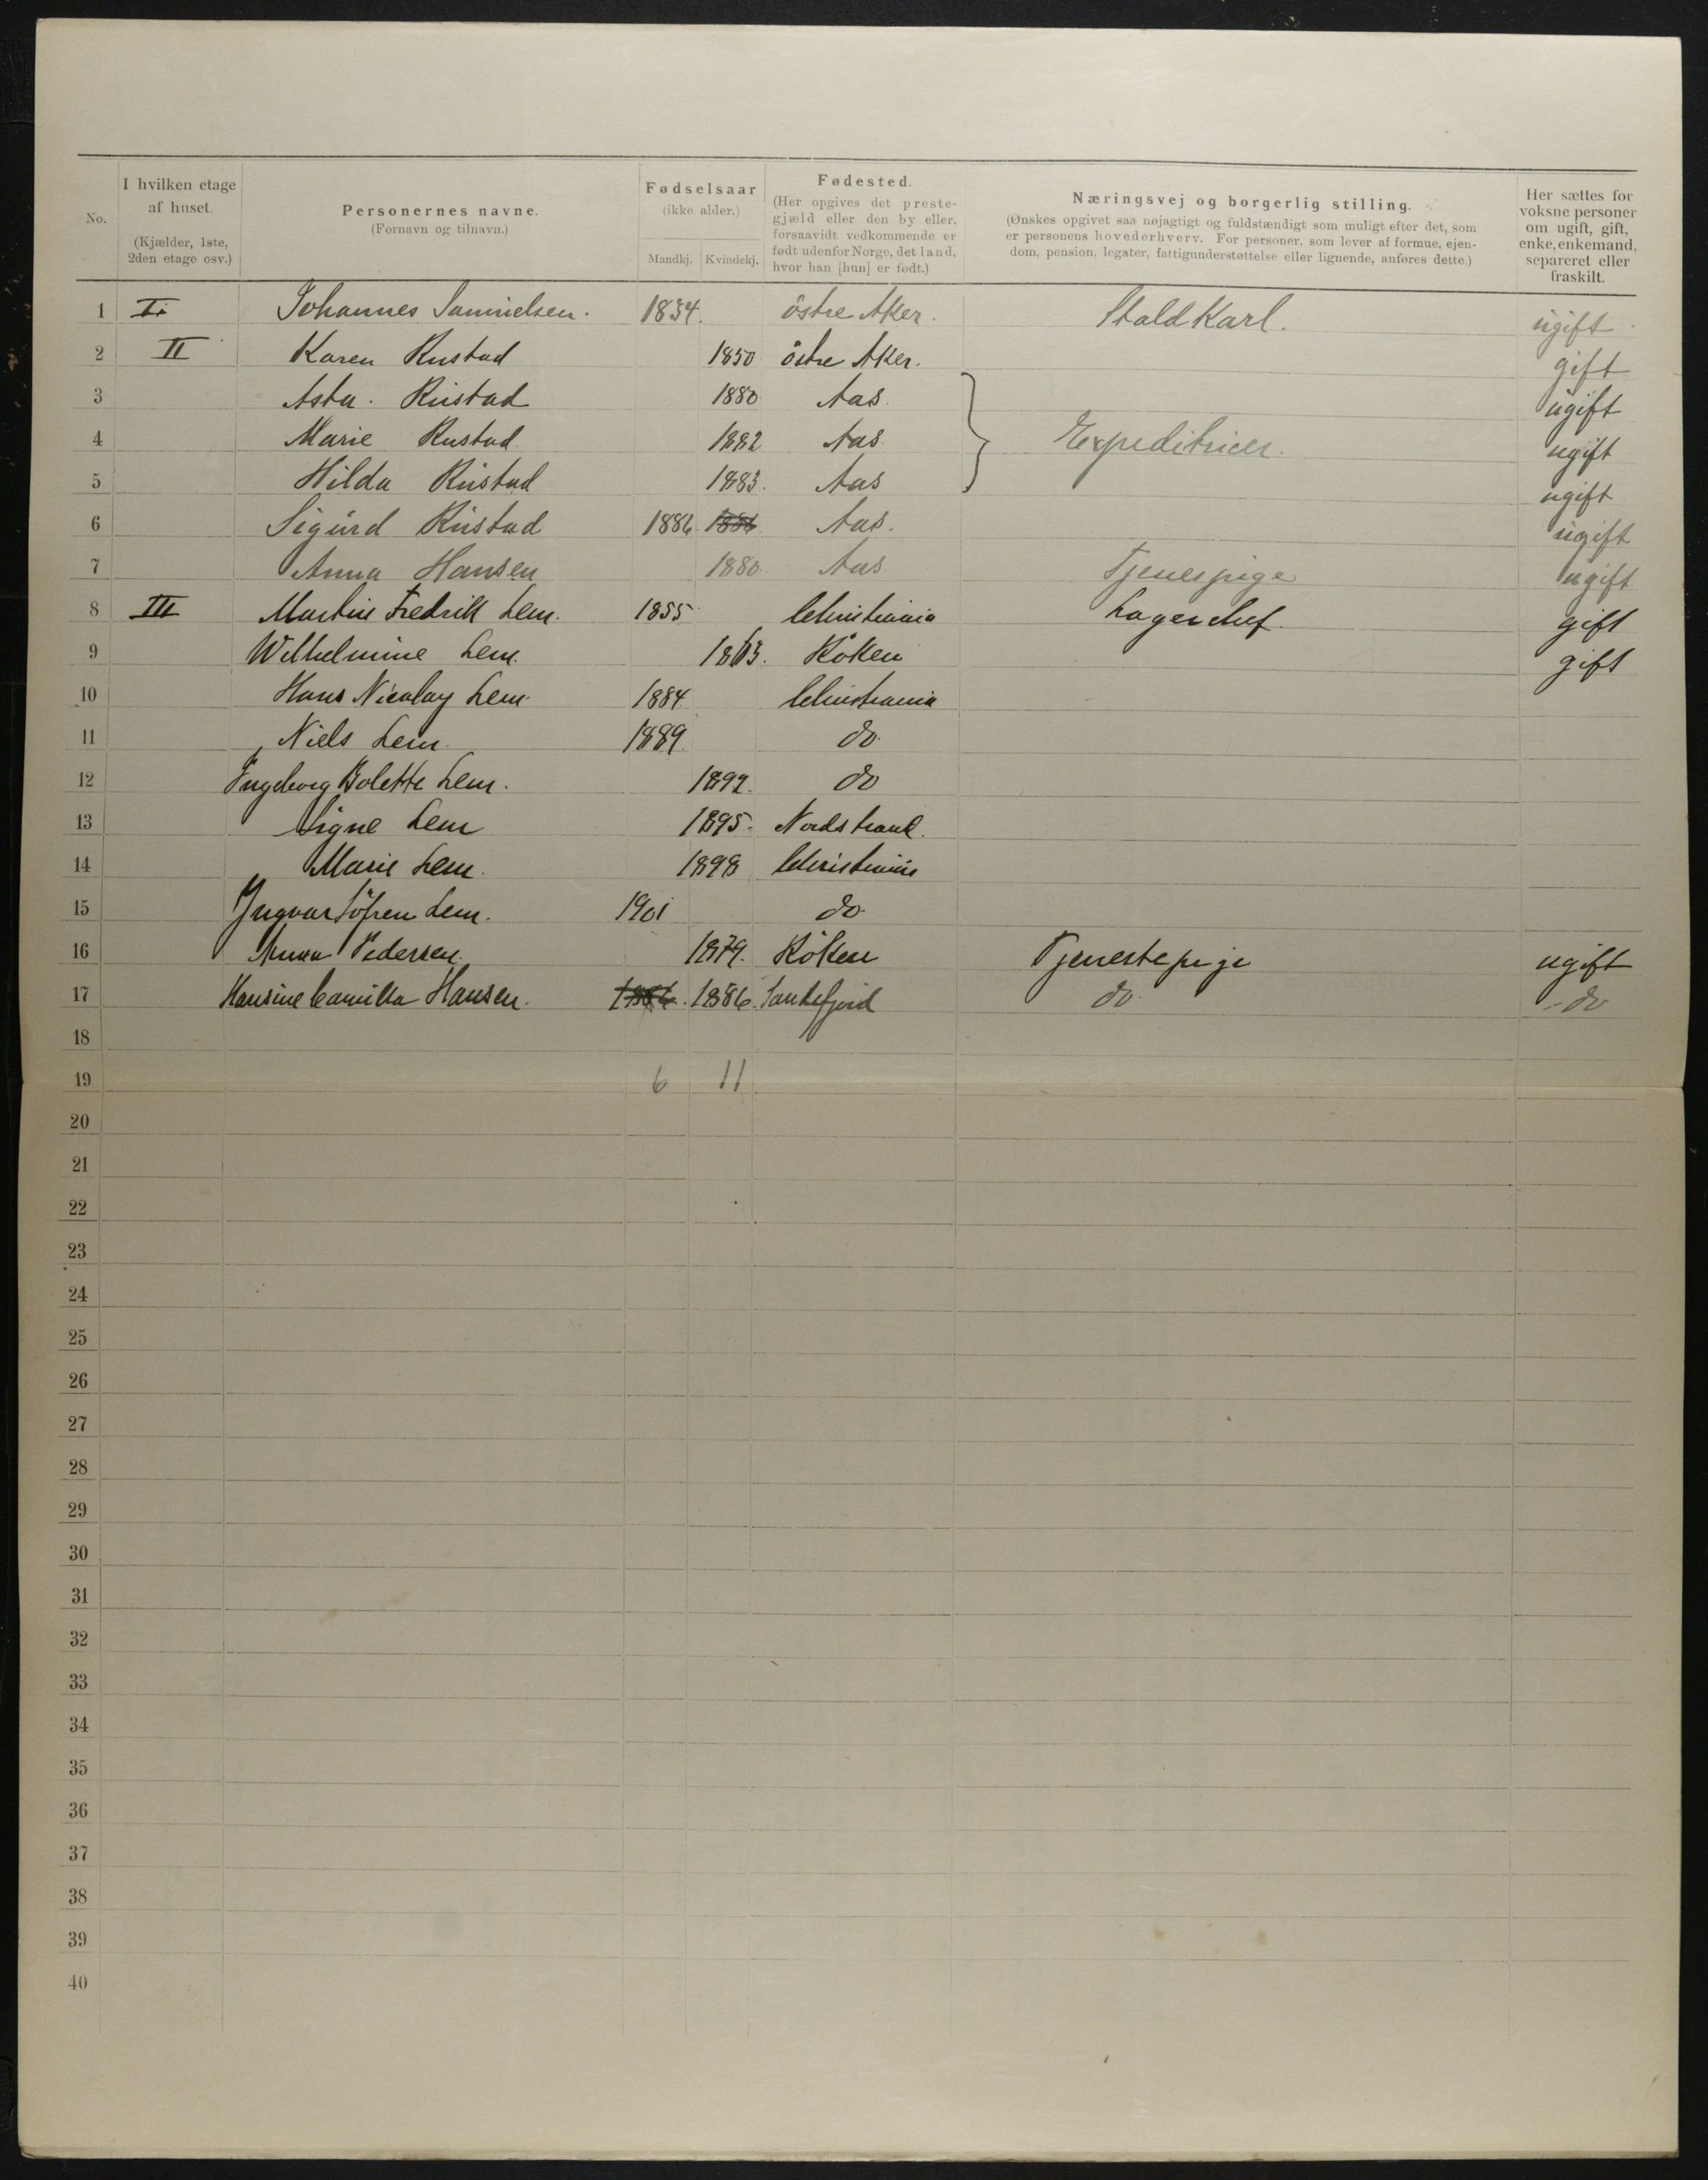 No.
I hvilken etage af huset. (Kjælder, 1ste, 2den etage osv.)
Personernes navne. (Fornavn og tilnavn.)
Fødselsaar (ikke alder.) Mandkj. Kvindekj.
Fødested. (Her opgives det prestegjæld eller den by eller, forsaavidt vedkommende er født udenfor Norge, det land, hvor han [hun] er født.)
Næringsvej og borgerlig stilling. (Ønskes opgivet saa nøjagtigt og fuldstændigt som muligt efter det, som er personens hovederhverv. For personer, som lever af formue, ejendom, pension, legater, fattigunderstøttelse eller lignende, anføres dette.)
Her sættes for voksne personer om ugift, gift, enke, enkemand, separeret eller fraskilt.
1 I. Johannes Samuelsen. 1834. östre Aker. Stald Karl. ugift
2 II Karen Rustad 1850 östre Aker. gift
3 Asta. Rustad 1880 Aas. ugift
4 Marie Rustad 1882 Aas. Expeditricer. ugift
5 Hilda Rustad 1883. Aas ugift
6 Sigurd Rustad 1886 1886 Aas. ugift
7 Anna Hansen 1880. Aas Tjenespige ugift
8 III Martin Fredrik Lem. 1855 Christiania Lagerchef. gift
9 Wilhelmine Lem. 1863. Röken gift
10 Hans Nicolay Lem. 1884 Christiania
11 Niels Lem. 1889 do
12 Ingeborg Bolette Lem. 1892. do
13 Signe Lem 1895. Nordstrand.
14 Marie Lem. 1898 Christiania
15 Yngvar Lem. 1901 do
16 Anna Pedersen. 1879. Röken Tjenestepige ugift
17 Hansine Camilla Hansen. 1886. 1886. Sandefjord do do
18
19 6 11
20
21
22
23
24
25
26
27
28
29
30
31
32
33
34
35
36
37
38
39
40